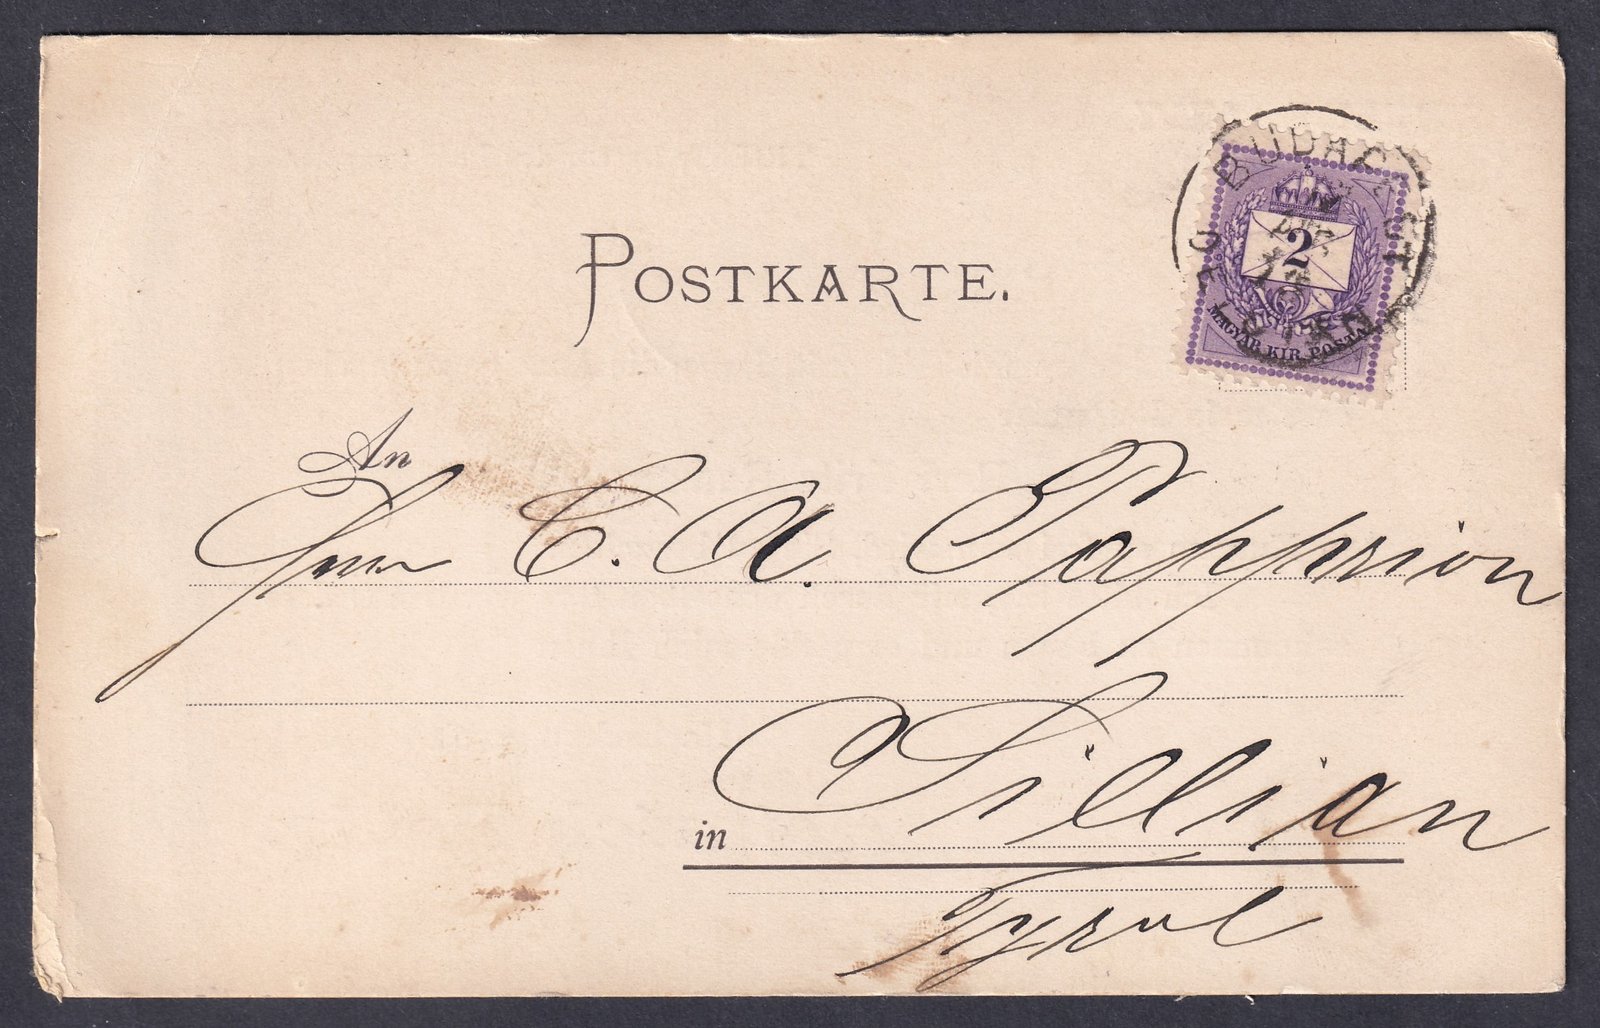 BUDAPEST
2
MAGYAR KIR. POSTA
POSTKARTE.
An
Herrn C. A. Papprion
in Sillian
Tyrol